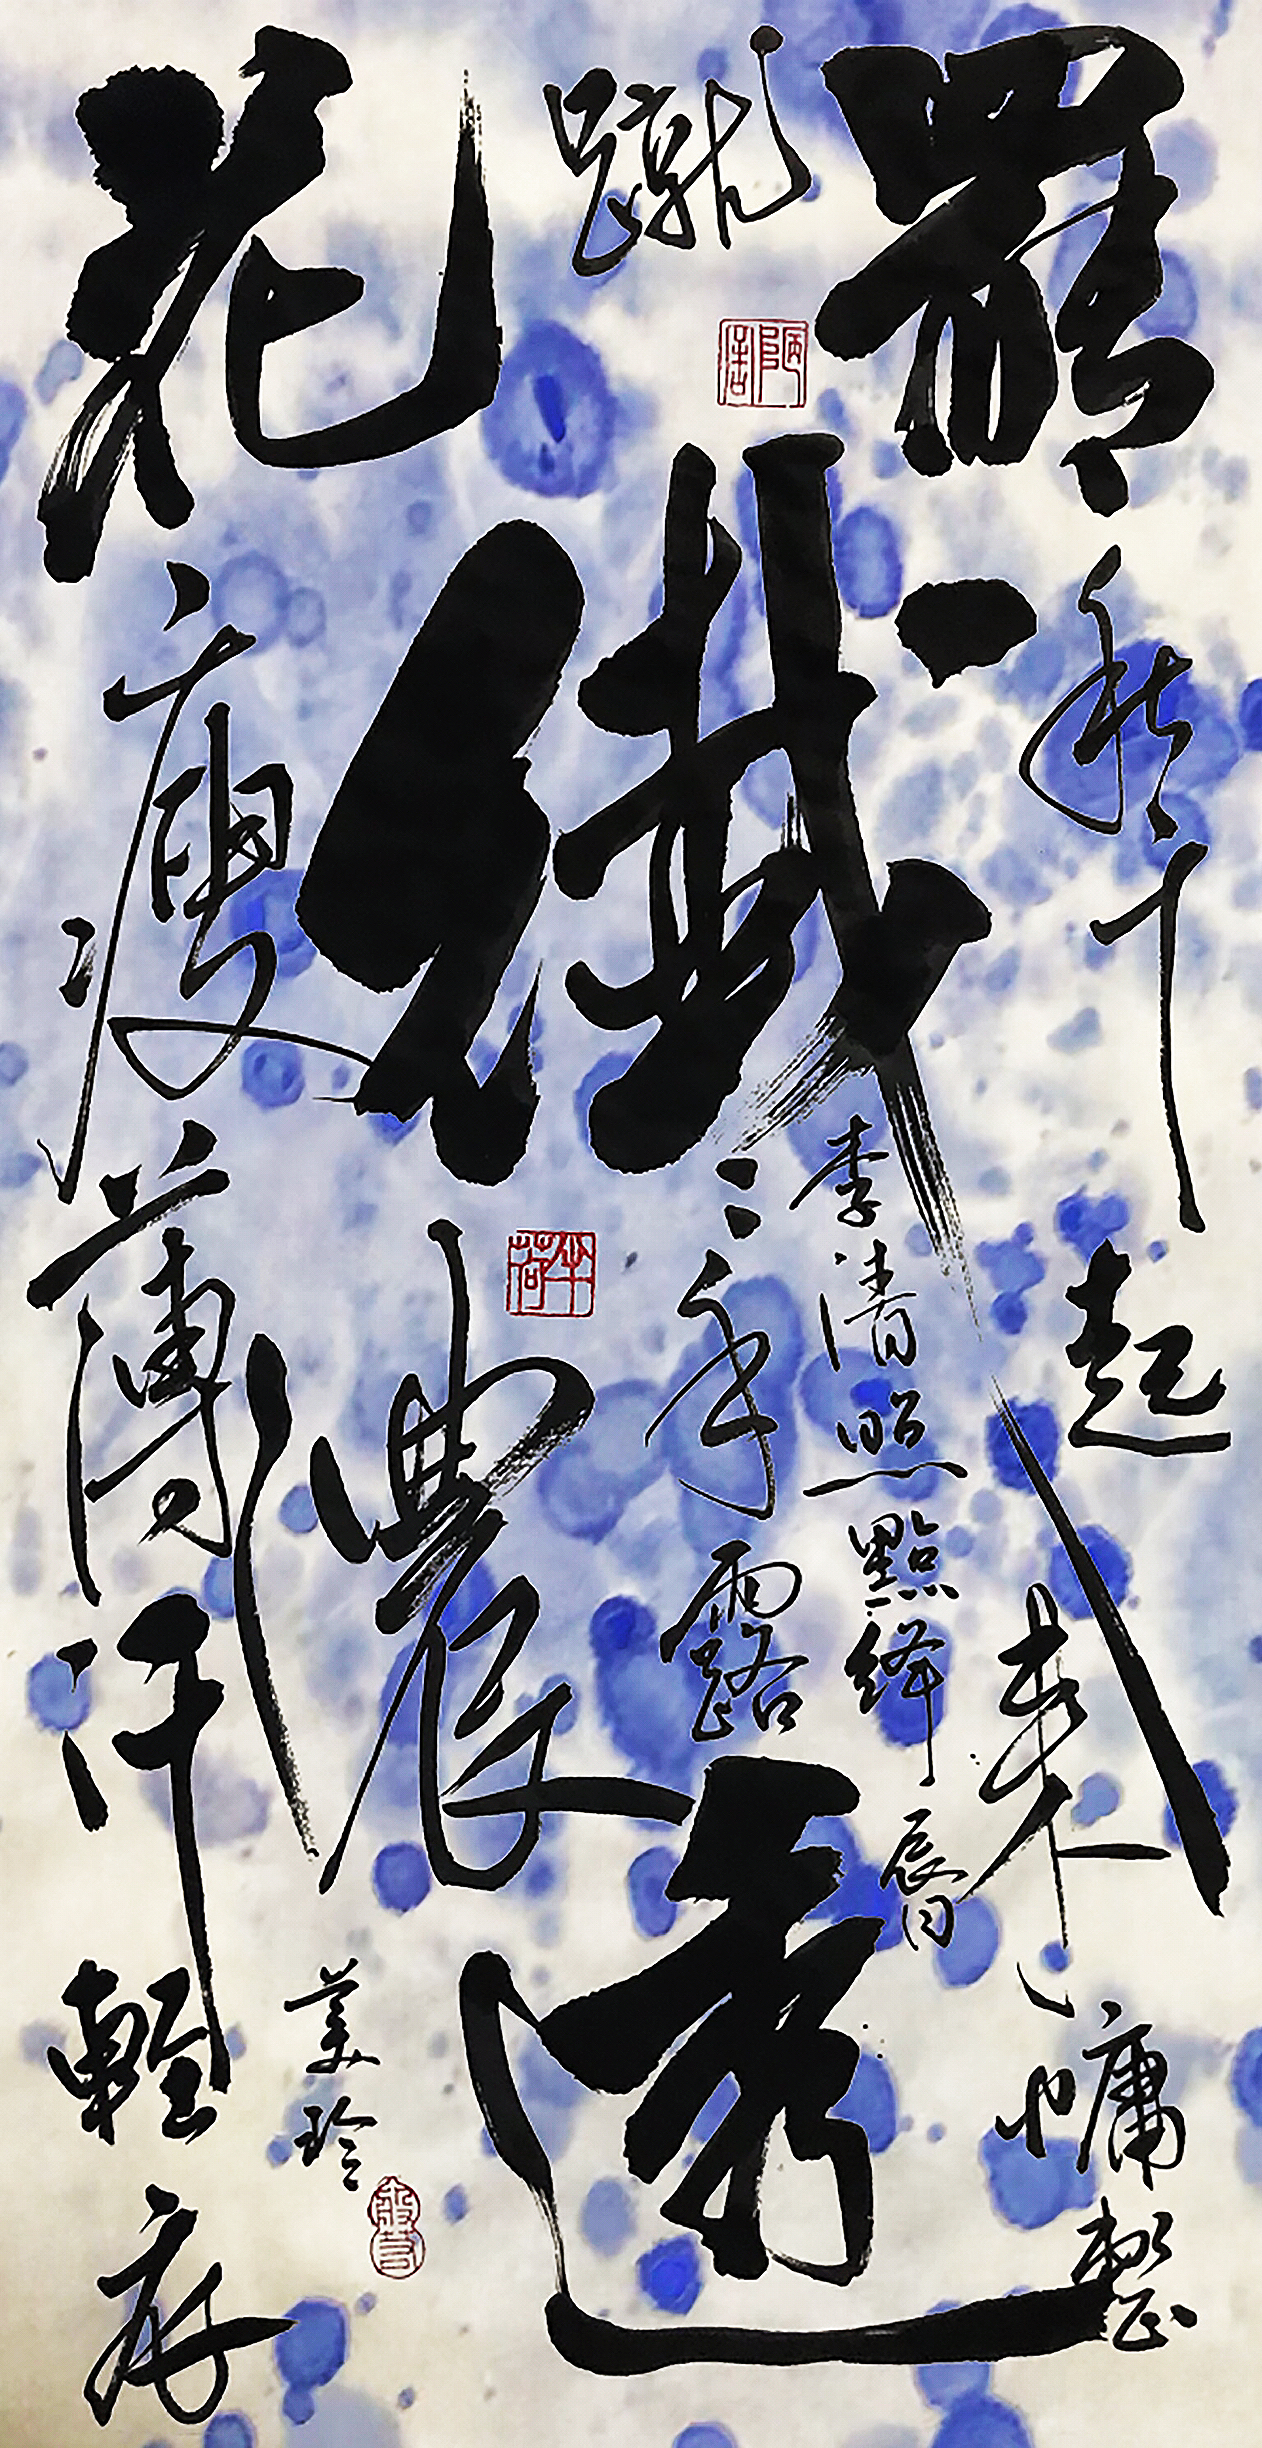 蹴
罷秋千起來慵整
纖〻手露
濃
花瘦薄汗輕衣
透
李清照點絳脣
美玲
半荷